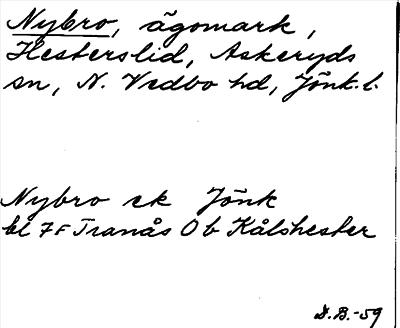 Nybro, ägomark,
Hesterslid, Askeryds
sn, N. Vedbo hd, Jönk. l.
Nybro ek Jönk
bl 7F Tranås Ob Kålshester
D.B.-59